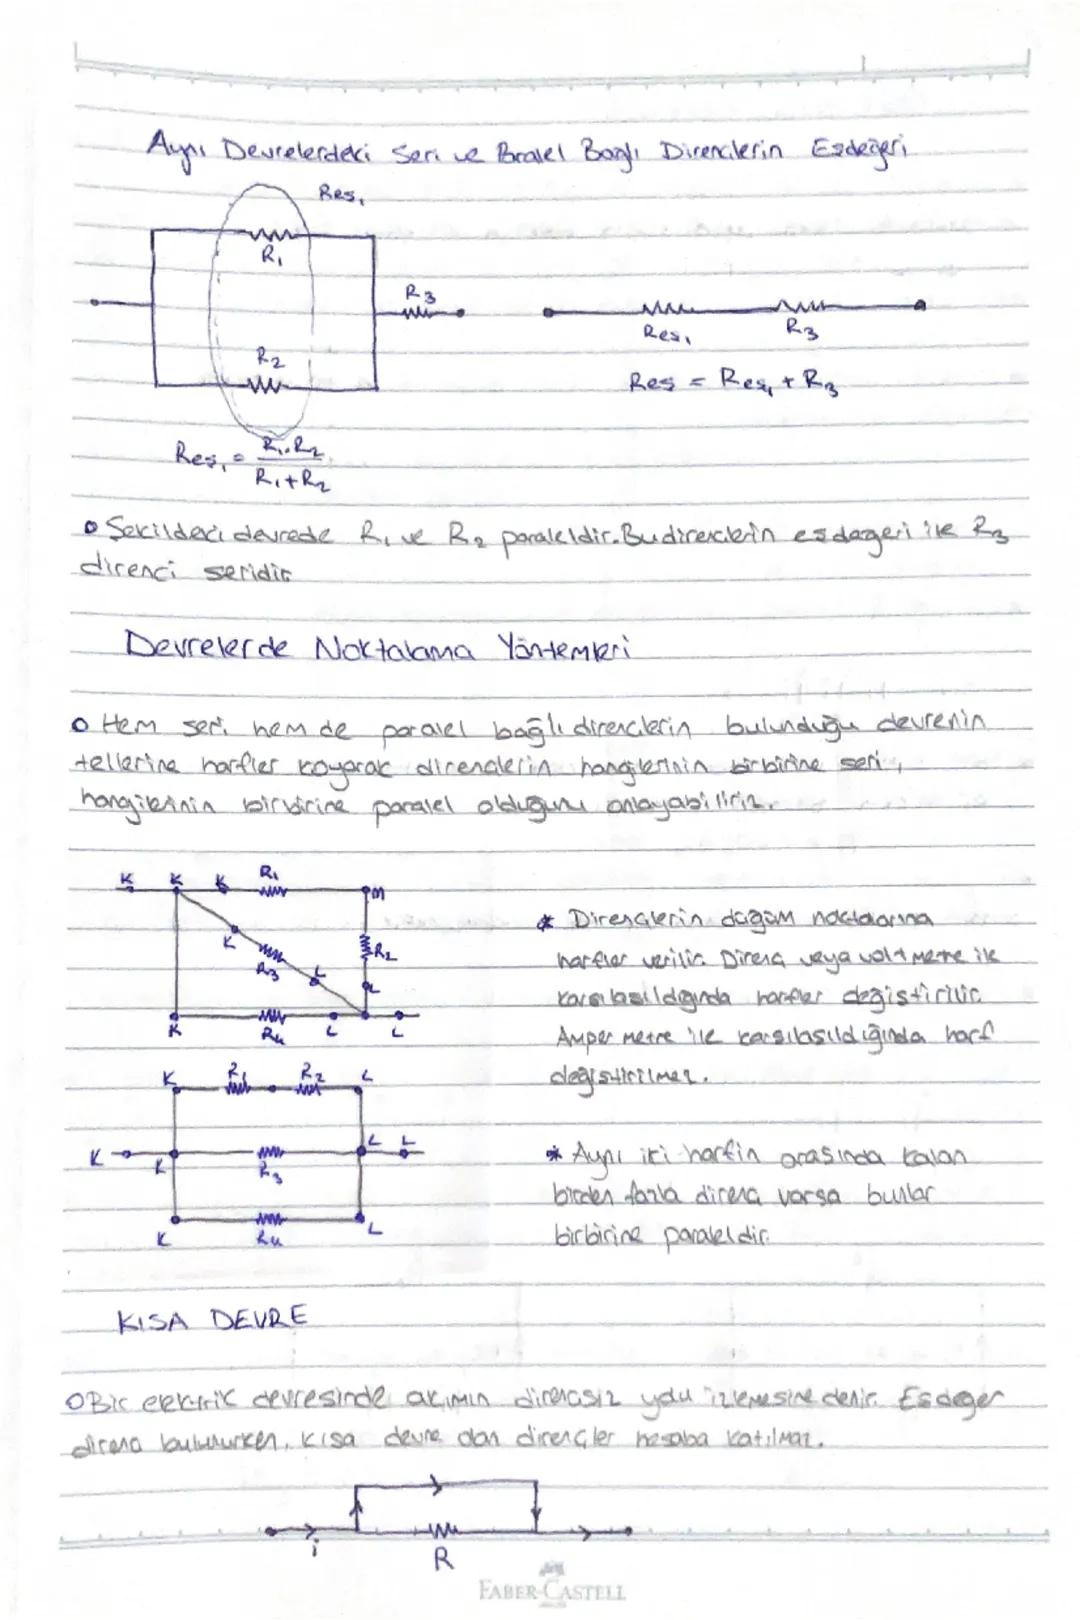 Aynı Devrelerdeki Seri ve Paralel Bağlı Dirençlerin Eşdeğeri
Reş₁
R₁
R₃
R₂
Reş₁ R₃
Reş = Reş₁ + R₃
Reş₁ = R₁.R₂
R₁+R₂
o Şekildeki devrede R₁ ve R₂ paraleldir. Bu dirençlerin eşdeğeri ile R₃
direnci seridir
Devrelerde Noktalama Yöntemleri
o Hem seri, hem de paralel bağlı dirençlerin bulunduğu devrenin
tellerine harfler koyarak dirençlerin hangilerinin birbirine seri,
hangilerinin birbirine paralel olduğunu anlayabiliriz.
K K K R₁ M
K R₃ L R₂ L
K R₄ L L
* Dirençlerin düğüm noktalarına
harfler verilir. Direnç veya voltmetre ile
karşılaşıldığında harfler değiştirilir.
Ampermetre ile karşılaşıldığında harf
değiştirilmez.
K R₁ R₂ L
K K R₃ L L
K R₄ L
* Aynı iki harfin arasında kalan
birden fazla direnç varsa bunlar
birbirine paraleldir.
KISA DEVRE
o Bir elektrik devresinde akımın dirençsiz yolu izlemesine denir. Eşdeğer
direnç bulunurken, kısa devre olan dirençler hesaba katılmaz.
i R
FABER-CASTELL